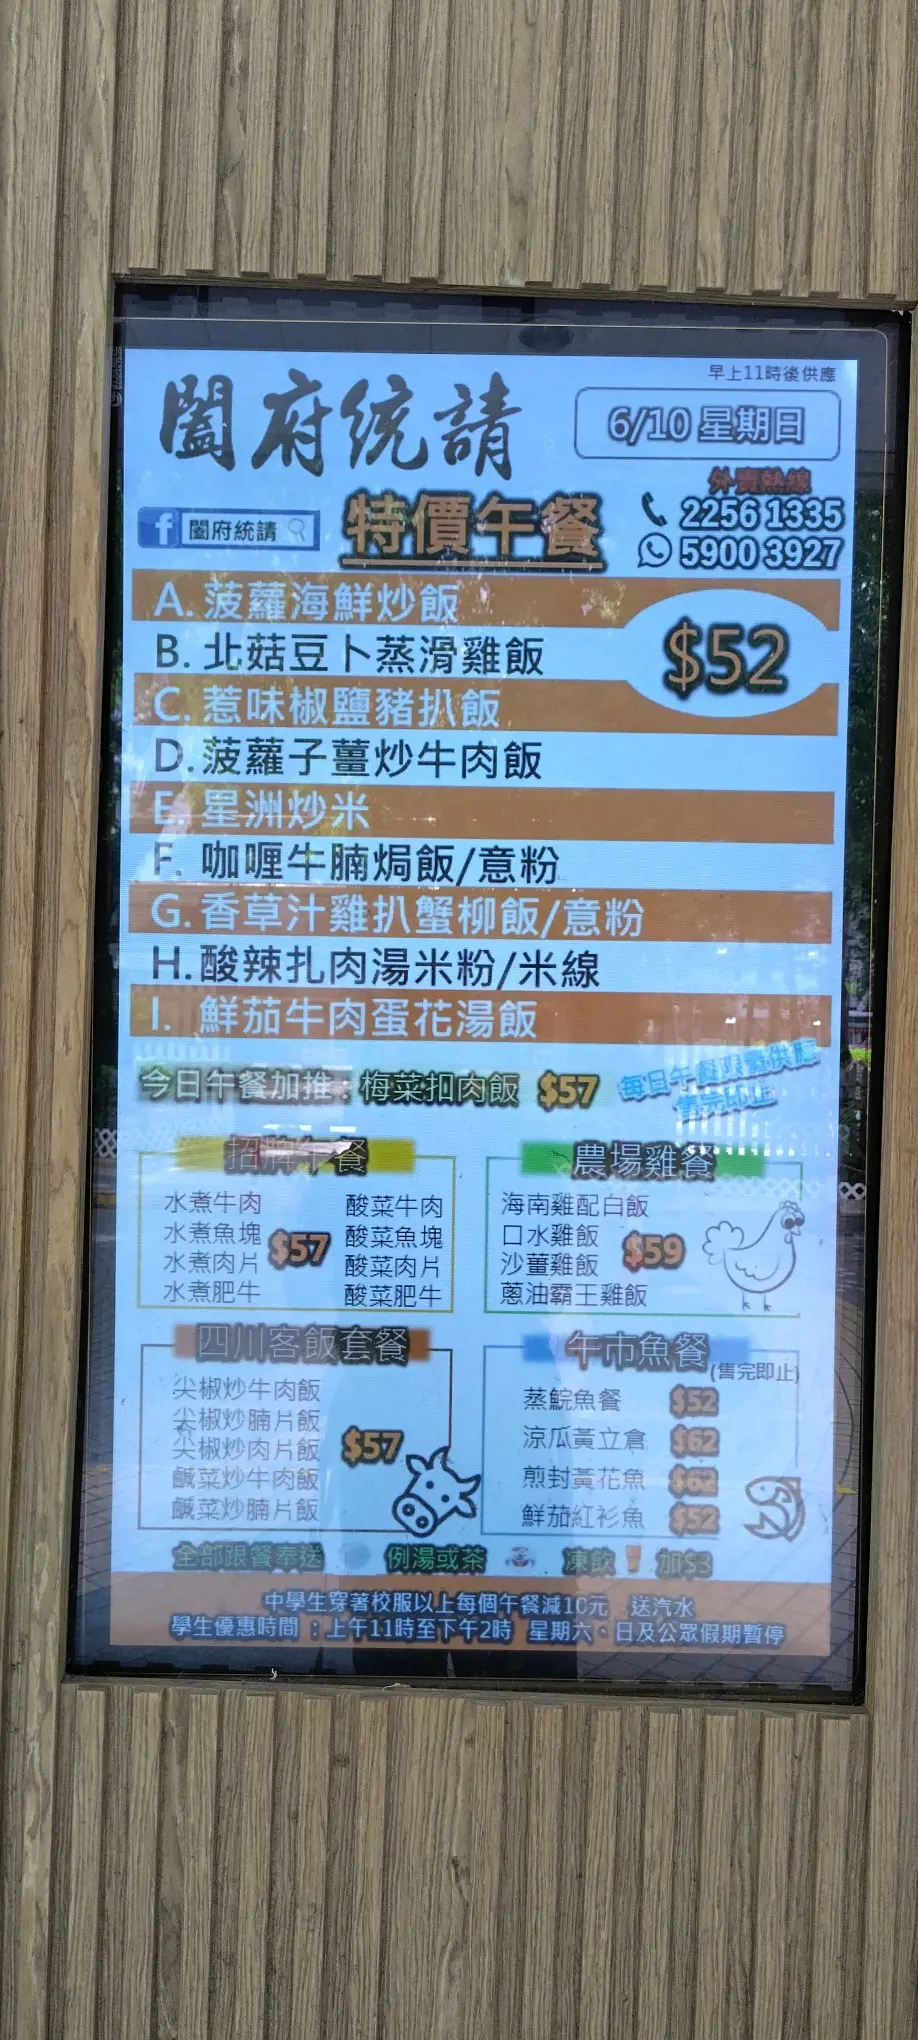 早上11時後供應
闔府統請
6/10 星期日
外賣熱線
2256 1335
5900 3927
f 闔府統請
特價午餐
A. 菠蘿海鮮炒飯
B. 北菇豆卜蒸滑雞飯
$52
C. 惹味椒鹽豬扒飯
D. 菠蘿子薑炒牛肉飯
E. 星洲炒米
F. 咖喱牛腩焗飯/意粉
G. 香草汁雞扒蟹柳飯/意粉
H. 酸辣扎肉湯米粉/米線
I. 鮮茄牛肉蛋花湯飯
今日午餐加推：梅菜扣肉飯 $57
每日午餐限量供應
售完即止
招牌午餐
水煮牛肉 酸菜牛肉
水煮魚塊 酸菜魚塊
$57
水煮肉片 酸菜肉片
水煮肥牛 酸菜肥牛
農場雞餐
海南雞配白飯
口水雞飯
$59
沙薑雞飯
蔥油霸王雞飯
四川客飯套餐
尖椒炒牛肉飯
尖椒炒腩片飯
尖椒炒肉片飯
$57
鹹菜炒牛肉飯
鹹菜炒腩片飯
午市魚餐
(售完即止)
蒸鯇魚餐 $52
涼瓜黃立倉 $62
煎封黃花魚 $62
鮮茄紅衫魚 $52
全部跟餐奉送 例湯或茶 凍飲 加$3
中學生穿著校服以上每個午餐減10元 送汽水
學生優惠時間：上午11時至下午2時 星期六、日及公眾假期暫停